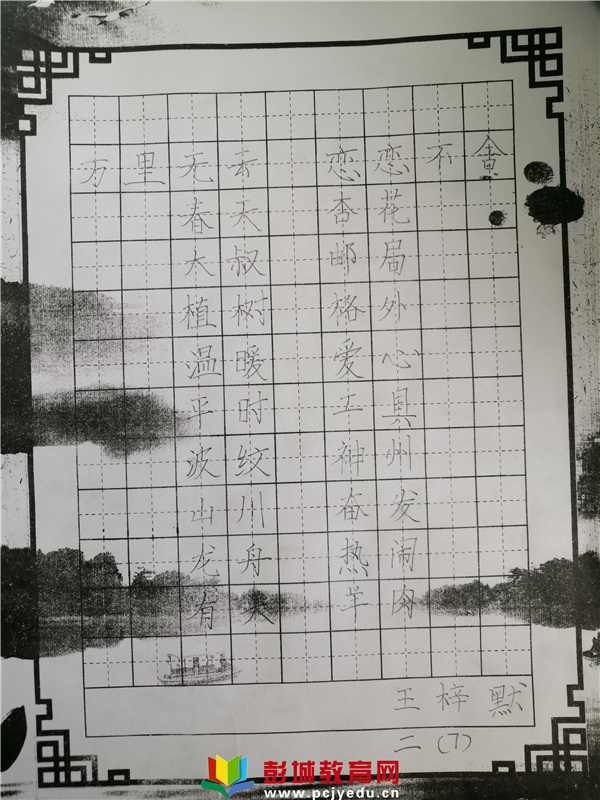 万里无云 恋恋不
春天 杏花
大叔 邮局
植树 格外
温暖 爱心
平时 工具
波纹 神州
山川 奋发
龙舟 热闹
有关 羊肉
王梓默
二(7)
彭城教育网
www.pcjyedu.cn